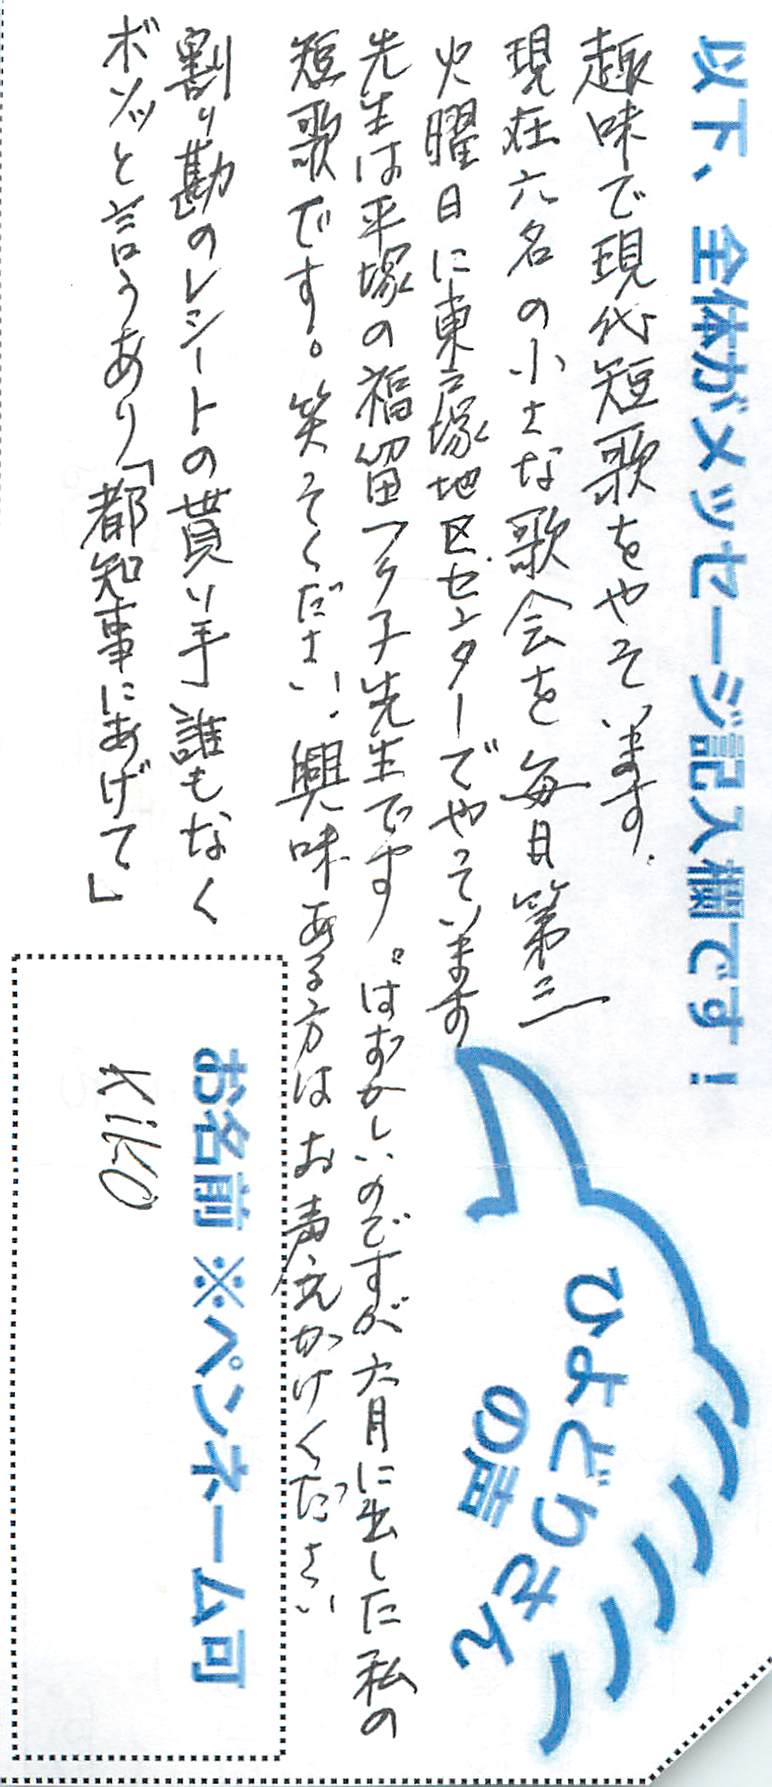 以下、全体がメッセージ記入欄です!
趣味で現代短歌をやっています.
現在六名の小さな歌会を毎月第三
火曜日に東戸塚地区センターでやっています
先生は平塚の福留フク子先生です。はずかしいのですが六月に出した私の
短歌です。笑ってください.興味ある方はお声えかけください
割り勘のレシートの貰い手誰もなく
ボソッと言うあり「都知事にあげて」
ひよどりさん
の声
お名前 ※ペンネーム可
KiKO